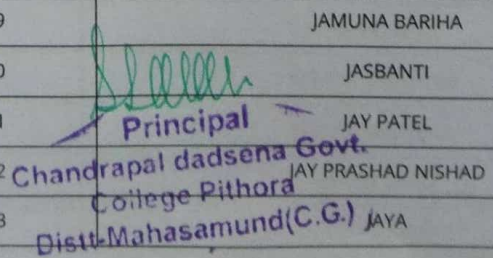 9 JAMUNA BARIHA
0 JASBANTI
1 JAY PATEL
2 JAY PRASHAD NISHAD
3 JAYA
Principal
Chandrapal dadsena Govt.
College Pithora
Distt-Mahasamund(C.G.)